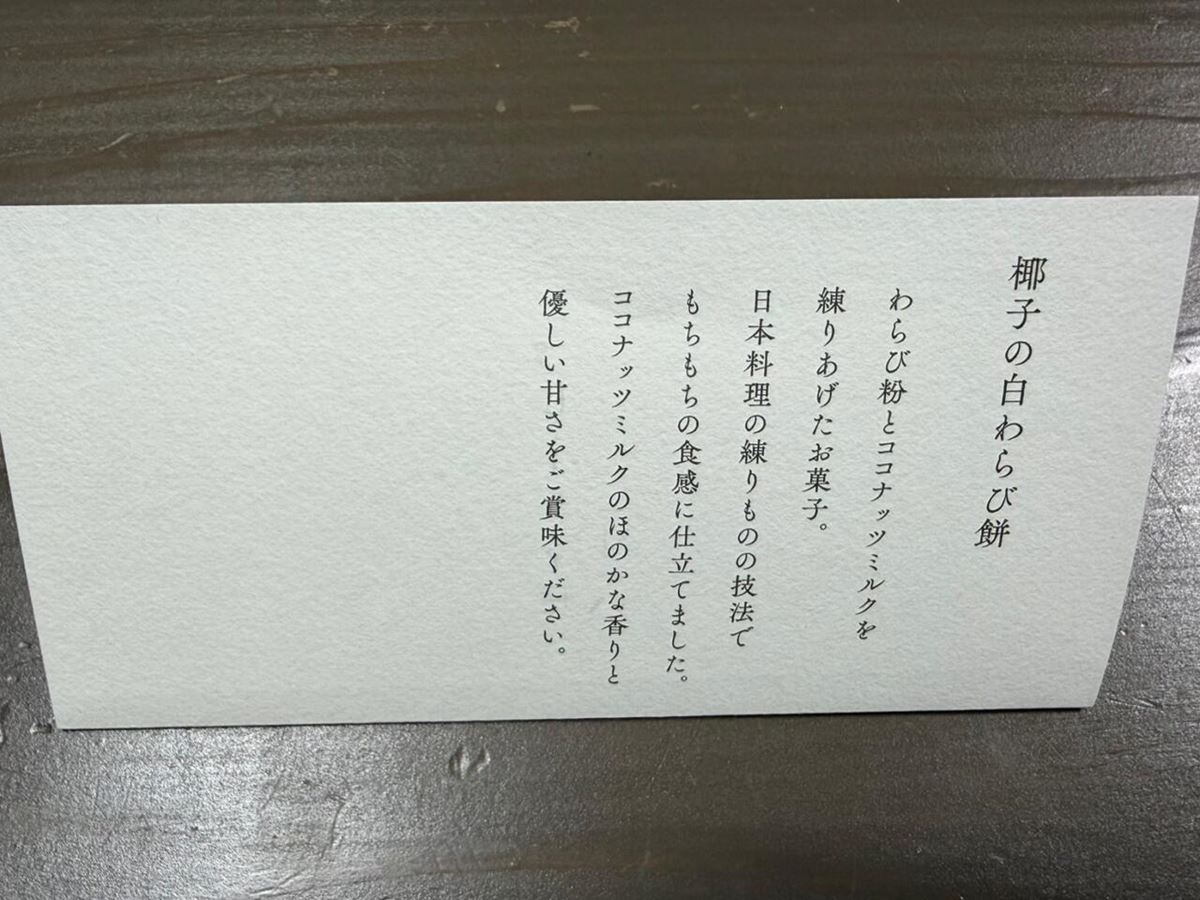 椰子の白わらび餅
わらび粉とココナッツミルクを
練りあげたお菓子。
日本料理の練りものの技法で
もちもちの食感に仕立てました。
ココナッツミルクのほのかな香りと
優しい甘さをご賞味ください。